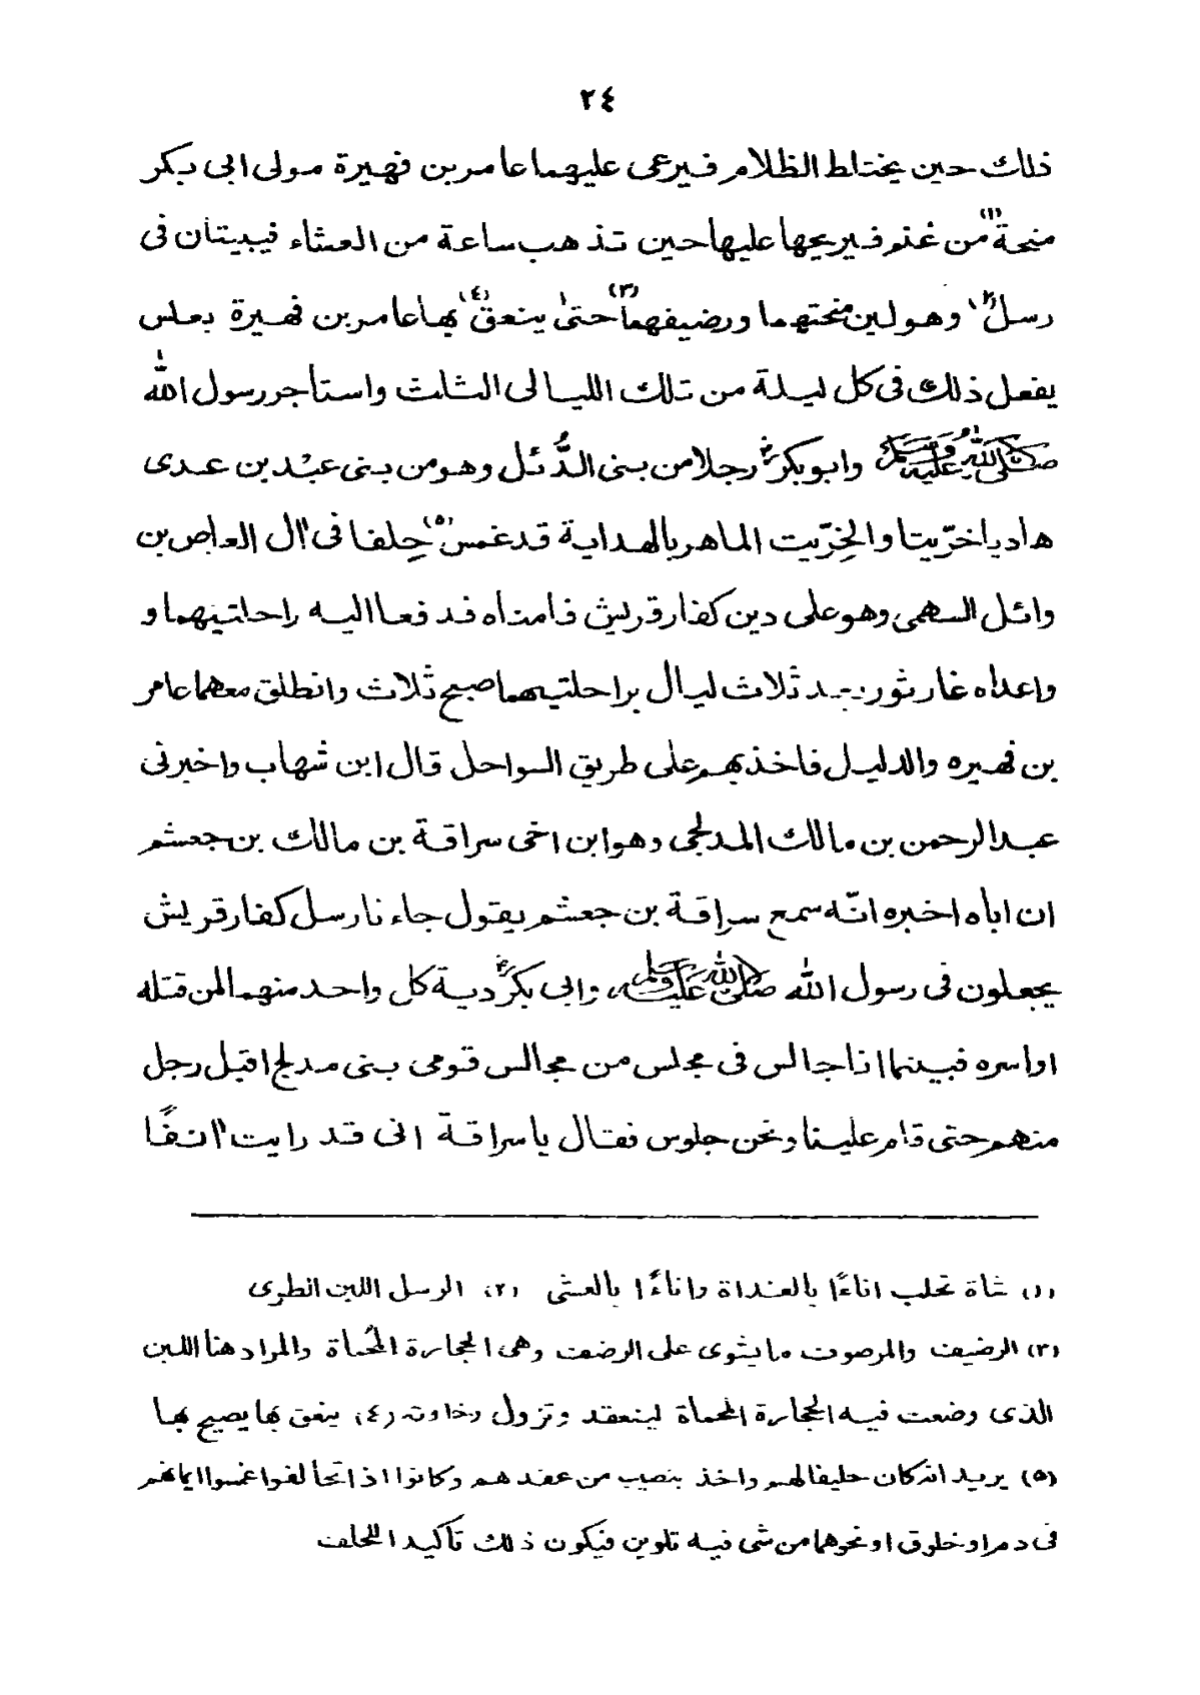 ٢٤
ذلك حين يختلط الظلام فيرعى عليهما عامر بن فهيرة مولى ابى بكر
منحة (١) من غنم فيريحها عليها حين تذهب ساعة من العشاء فيبيتان فى
رسل (٢) وهو لبن منحتهما ورضيفهما (٣) حتى ينعق (٤) بها عامر بن فهيرة بغلس
يفعل ذلك فى كل ليلة من تلك الليالى الثلث واستاجر رسول الله
صلى الله عليه وسلم وابو بكر رض رجلا من بنى الدُّئل وهو من بنى عبْد بن عدى
هاديا خرّيتا والخِرّيت الماهر بالهداية قد غمس (٥) حِلفا فى اٰل العاص بن
وائل السهمى وهو على دين كفار قريش فامناه فدفعا اليه راحلتيهما و
واعداه غار ثور بعد ثلاث ليال براحلتيهما صبح ثلاث وانطلق معهما عامر
بن فهيره والدليل فاخذ بهم على طريق السواحل قال ابن شهاب واخبرنى
عبد الرحمن بن مالك المدلجى وهو ابن اخى سراقة بن مالك بن جعشم
ان اباه اخبره انّه سمع سراقة بن جعشم يقول جاءنا رسل كفار قريش
يجعلون فى رسول الله صلى الله عليه وسلم، وابى بكر رض دية كل واحد منهما لمن قتله
او اسره فبينما انا جالس فى مجلس من مجالس قومى بنى مدلج اقبل رجل
منهم حتى قام علينا ونحن جلوس فقال يا سراقة انى قد رايت اٰنفًا
(١) شاة تحلب اناءًا بالغداة واناءًا بالعشى (٢) الرسل اللبن الطرى
(٣) الرضيف والمرضوف ما يشوى على الرضف وهى الحجارة المُحماة والمراد هنا اللبن
الذى وضعت فيه الحجارة المحماة لينعقد وتزول رخاوته (٤) ينعق بها يصيح بها
(٥) يريد انه كان حليفا لهم واخذ بنصيب من عقدهم وكانوا اذا تحالفوا غمسوا ايمانهم
فى دم او خلوق او نحوهما من شى فيه تلوين فيكون ذلك تاكيدا للحلف